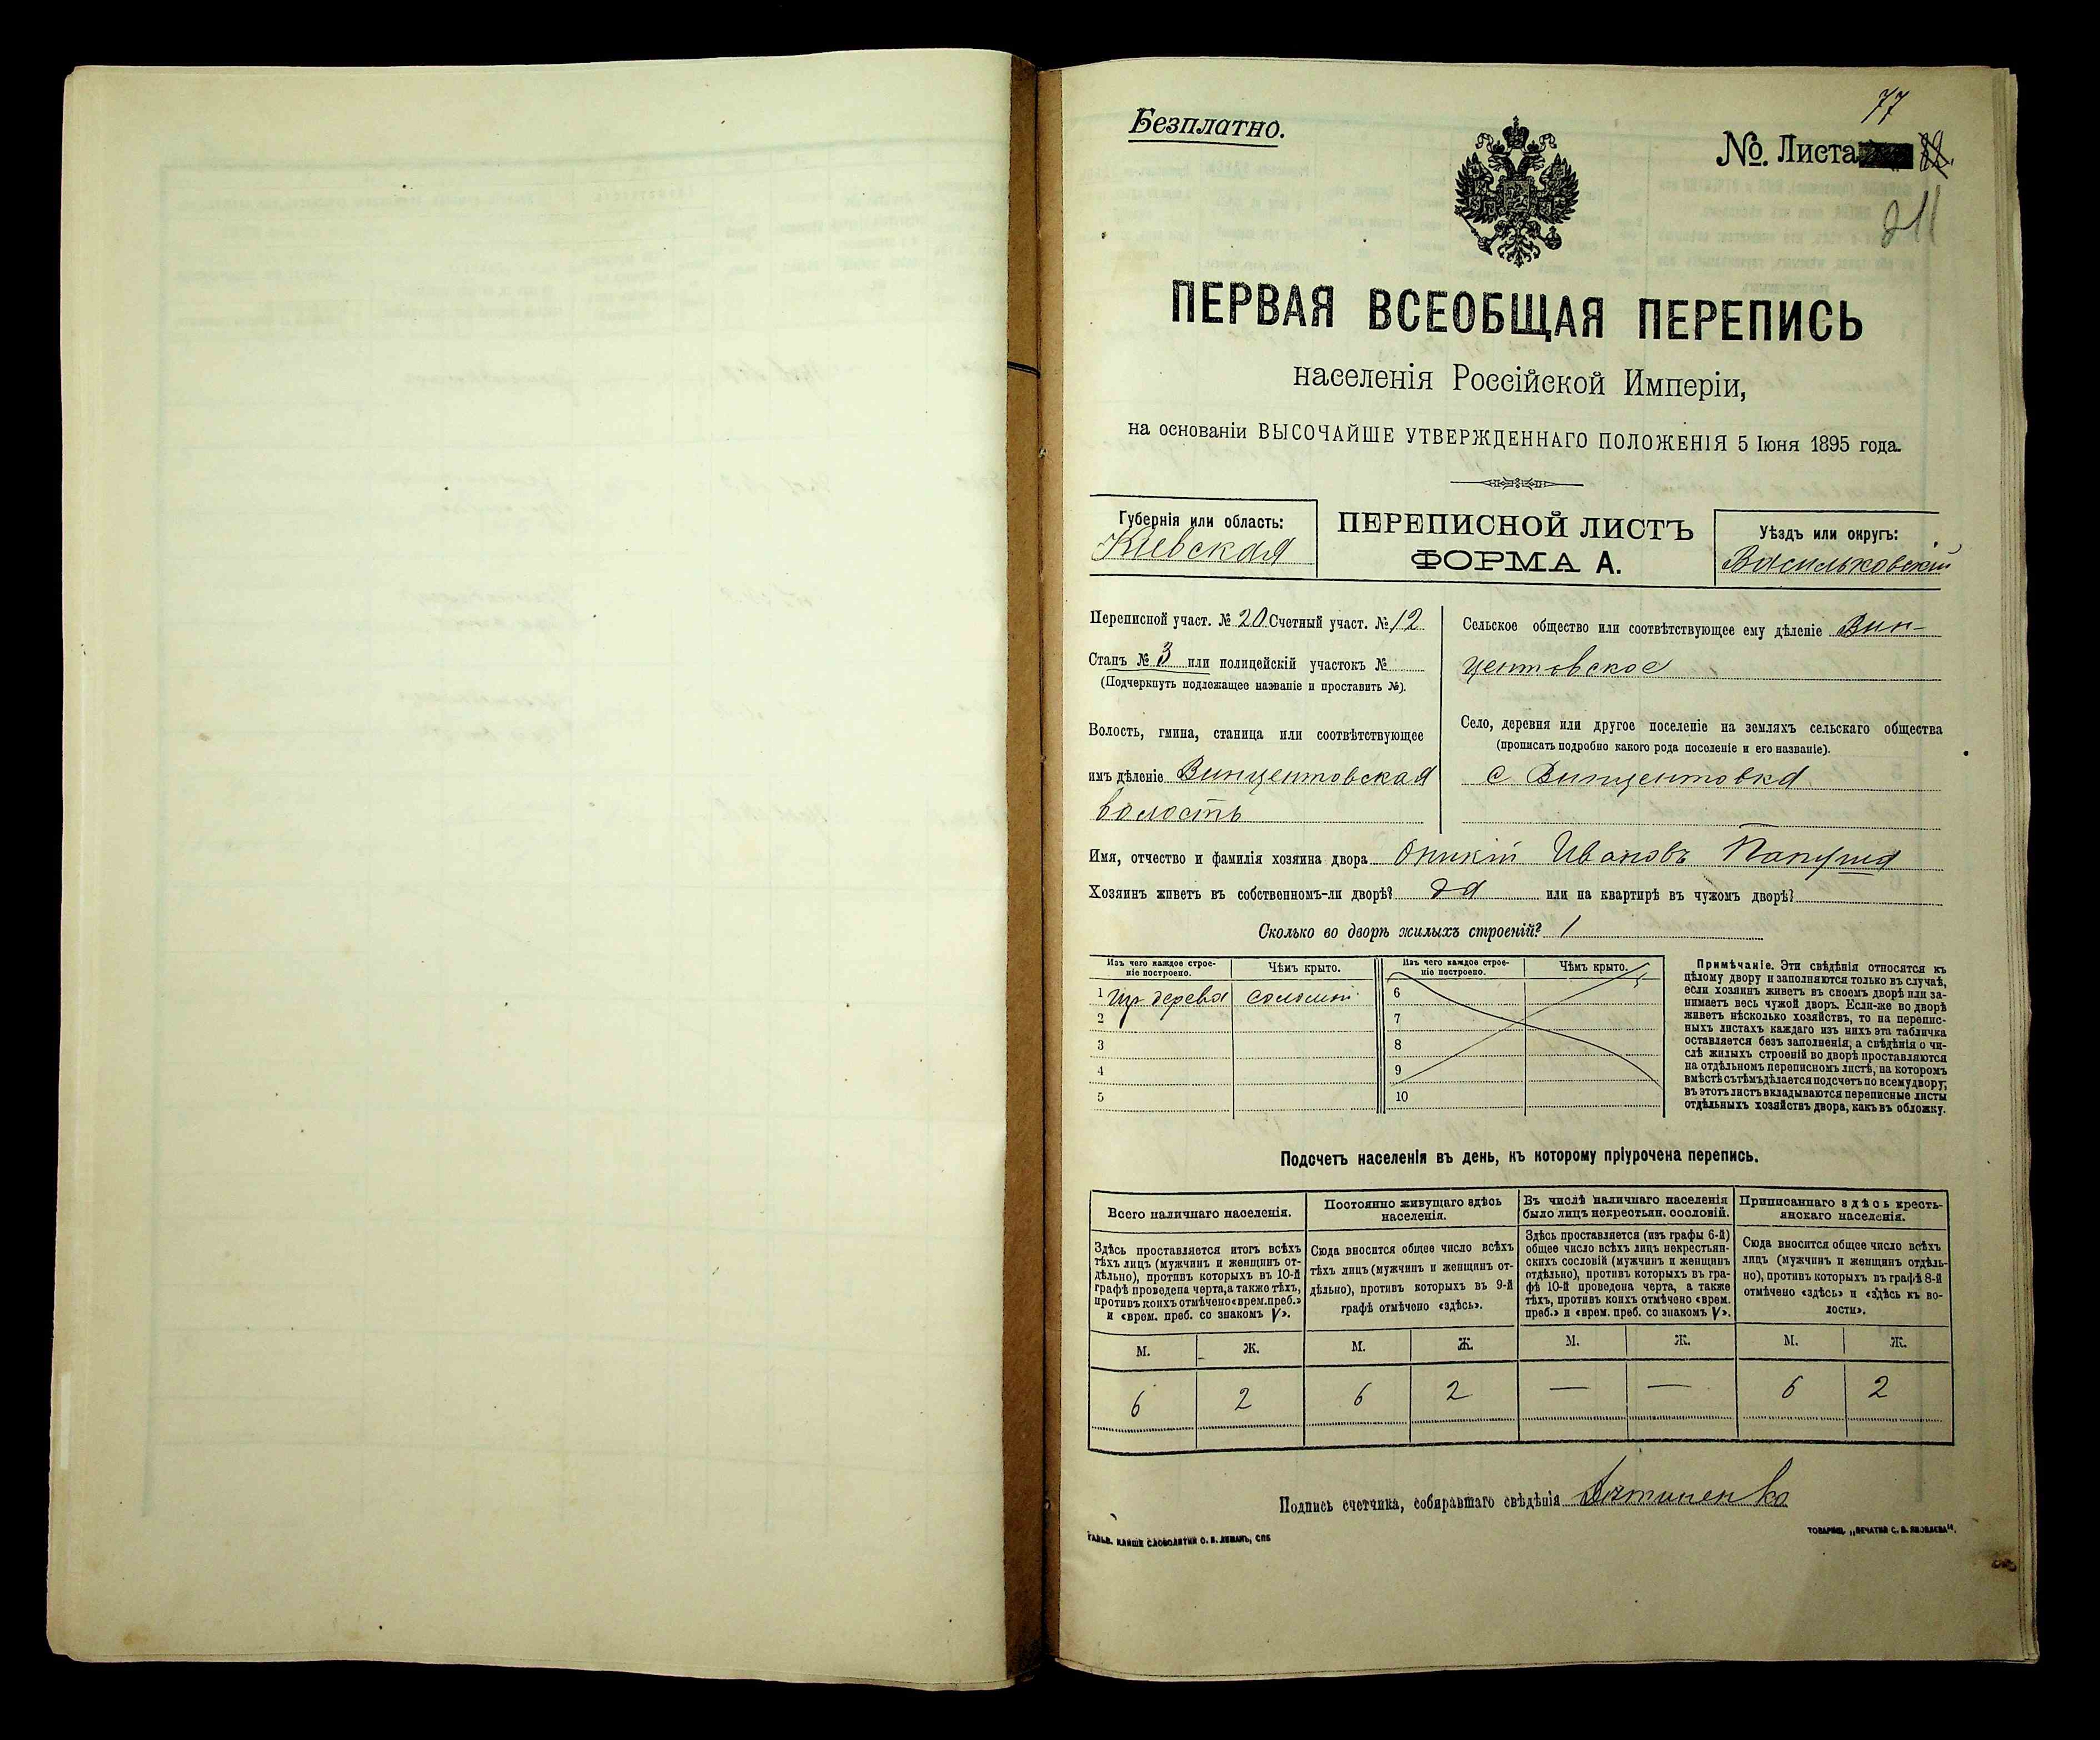 Безплатно.
77
№. Листа
211
ПЕРВАЯ ВСЕОБЩАЯ ПЕРЕПИСЬ
населенія Россійской Имперіи,
на основаніи ВЫСОЧАЙШЕ УТВЕРЖДЕННАГО ПОЛОЖЕНІЯ 5 Іюня 1895 года.
Губернія или область:
Кіевская
ПЕРЕПИСНОЙ ЛИСТЪ
ФОРМА А.
Уѣздъ или округъ:
Васильковскій
Переписной участ. № 20 Счетный участ. № 12
Станъ № 3 или полицейскій участокъ №
(Подчеркнуть подлежащее названіе и проставить №).
Волость, гмина, станица или соотвѣтствующее
имъ дѣленіе Винцентовская
волость
Сельское общество или соотвѣтствующее ему дѣленіе Вин-
центовское
Село, деревня или другое поселеніе на земляхъ сельскаго общества
(прописать подробно какого рода поселеніе и его названіе).
с Винцентовка
Имя, отчество и фамилія хозяина двора Оникій Ивановъ Папуша
Хозяинъ живетъ въ собственномъ-ли дворѣ? да или на квартирѣ въ чужомъ дворѣ?
Сколько во дворѣ жилыхъ строеній? 1
Изъ чего каждое строе-
ніе построено.
Чѣмъ крыто.
Изъ чего каждое строе-
ніе построено.
Чѣмъ крыто.
1 изъ дерева соломой
2
3
4
5
6
7
8
9
10
Примѣчаніе. Эти свѣдѣнія относятся къ
цѣлому двору и заполняются только въ случаѣ,
если хозяинъ живетъ въ своемъ дворѣ или за-
нимаетъ весь чужой дворъ. Если-же во дворѣ
живетъ нѣсколько хозяйствъ, то на перепис-
ныхъ листахъ каждаго изъ нихъ эта табличка
оставляется безъ заполненія, а свѣдѣнія о чи-
слѣ жилыхъ строеній во дворѣ проставляются
на отдѣльномъ переписномъ листѣ, на которомъ
вмѣстѣ съ тѣмъ дѣлается подсчетъ по всему двору;
въ этотъ листъ вкладываются переписные листы
отдѣльныхъ хозяйствъ двора, какъ въ обложку.
Подсчетъ населенія въ день, къ которому пріурочена перепись.
Всего наличнаго населенія.
Постоянно живущаго здѣсь
населенія.
Въ числѣ наличнаго населенія
было лицъ некрестьян. сословій.
Приписаннаго здѣсь кресть-
янскаго населенія.
Здѣсь проставляется итогъ всѣхъ
тѣхъ лицъ (мужчинъ и женщинъ от-
дѣльно), противъ которыхъ въ 10-й
графѣ проведена черта, а также тѣхъ,
противъ коихъ отмѣчено «врем. преб.»
и «врем. преб. со знакомъ V».
Сюда вносится общее число всѣхъ
тѣхъ лицъ (мужчинъ и женщинъ от-
дѣльно), противъ которыхъ въ 9-й
графѣ отмѣчено «здѣсь».
Здѣсь проставляется (изъ графы 6-й)
общее число всѣхъ лицъ некрестьян-
скихъ сословій (мужчинъ и женщинъ
отдѣльно), противъ которыхъ въ гра-
фѣ 10-й проведена черта, а также
тѣхъ, противъ коихъ отмѣчено «врем.
преб.» и «врем. преб. со знакомъ V».
Сюда вносится общее число всѣхъ
лицъ (мужчинъ и женщинъ отдѣль-
но), противъ которыхъ въ графѣ 8-й
отмѣчено «здѣсь» и «здѣсь къ во-
лости».
М. Ж. М. Ж. М. Ж. М. Ж.
6 2 6 2 — — 6 2
Подпись счетчика, собиравшаго свѣдѣнія